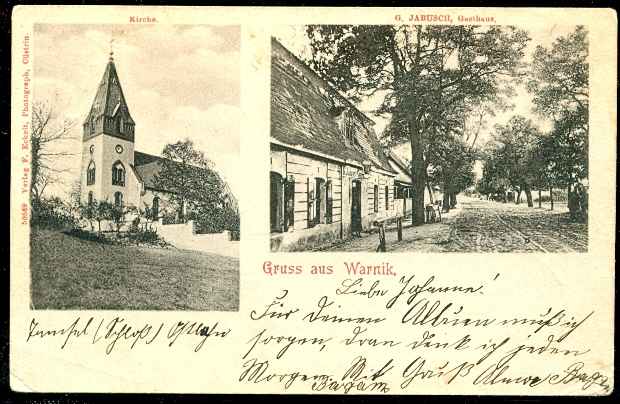 Kirche.
G. JABUSCH, Gasthaus.
Verlag F. Eckelt, Photograph, Cüstrin.
Gruss aus Warnik.
Liebe Johanne!
Für Deinen Album muß ich
sorgen, dran denk ich jeden
Morgen. Mit Gruß
Tamsel (Schloß) Ostbahn